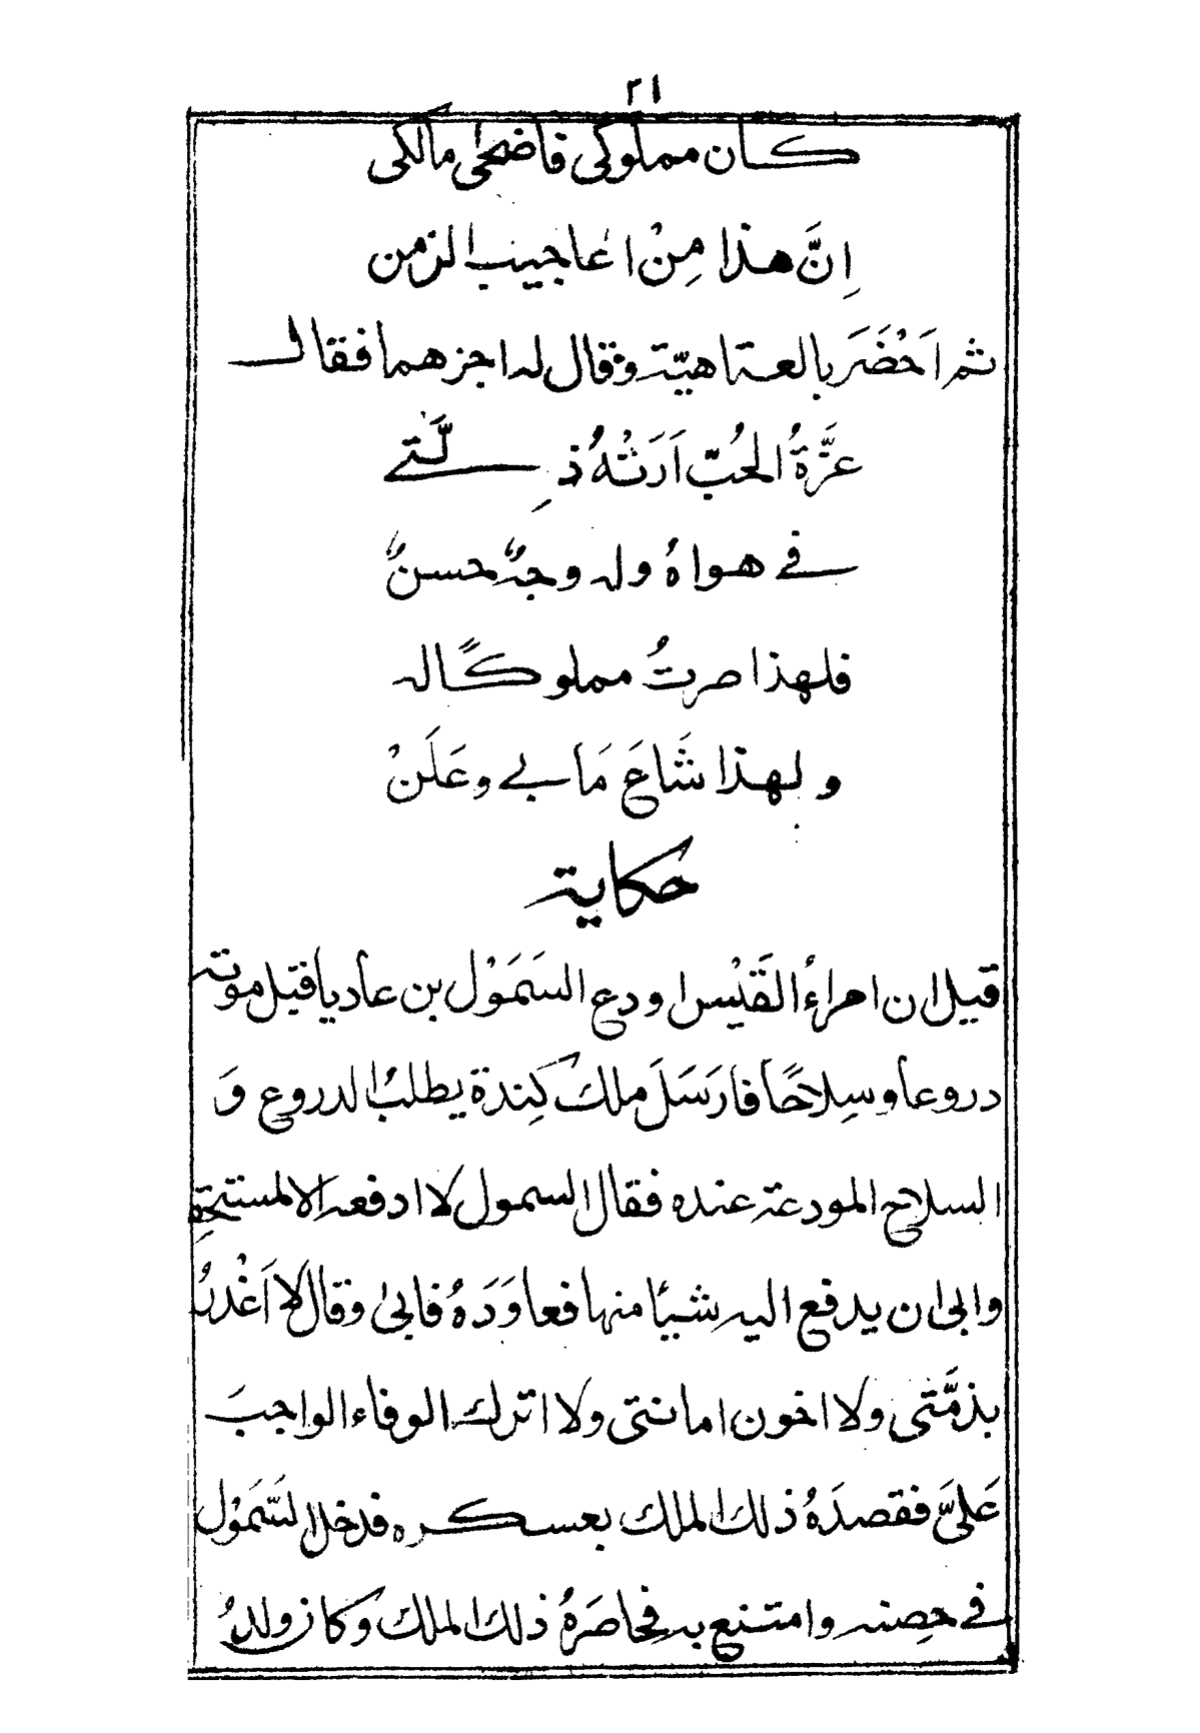 ٣١
كان مملوكى فاضحى مالكى
اِنَّ هذا مِنْ اعاجيب الزمن
ثم اَحْضَرَ بالعتاهيّة وقال له اجزهما فقال
عزَّةُ الحُبّ اَرَتْهُ ذِلَّتے
فے هواهُ وله وجهٌ حسنٌ
فلهذا صرتُ مملوكًا له
ولهذا شَاعَ مَا بے وعَلَنْ
حكاية
قيل ان امراءُ القَيْس اودع السَمَوْل بن عاديا قبل موته
دروعا وسِلاحًا فارَسَلَ ملك كِندة يطلبُ الدروع وَ
السلاح المودعة عنده فقال السمول لا ادفعه الا لمستحقه
وابى ان يدفع اليه شيئا منها فعاوَدَهُ فابى وقال لا اَغْدرُ
بذمَّتى ولا اخون امانتى ولا اترك الوفاء الواجبَ
عَلىَّ فقصدَهُ ذلك الملك بعسكره فدخل السَّمَوْل
فے حصِنه وامتنع به فحاصَرَهُ ذلك الملك وكان ولدُ